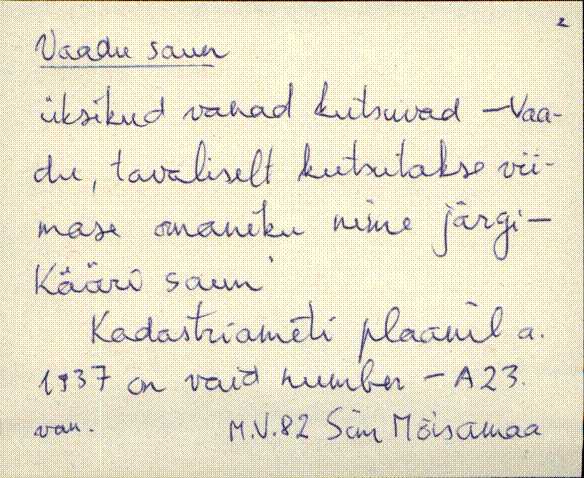 2
Vaadu saun
üksikud vanad kutsuvad – Vaa-
du, tavaliselt kutsutakse vii-
mase omaniku nime järgi –
Kääri saun
Kadastriameti plaanil a.
1937 on vaid number – A23.
van. M.V.82 Siim Mõisamaa